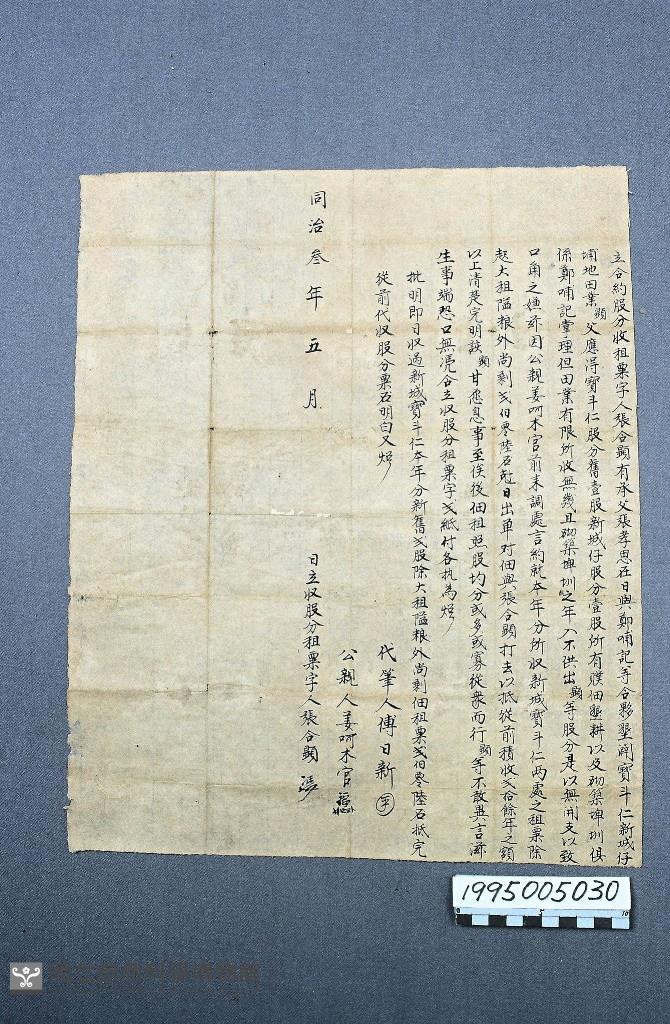 立合約股分收租粟字人張合顯有承父張孝思在日與鄭哺記等合夥墾闢寶斗仁新城仔
埔地田業顯父應得寶斗仁股分舊壹股新城仔股分壹股所有贌佃墾耕以及砌築埤圳俱
係鄭哺記掌理但田業有限所收無幾且砌築埤圳之年入不供出顯等股分是以無開支以致
口角之嫌茲因公親姜呵木官前來調處言約就本年分所收新城寶斗仁两處之租粟除
起大租隘粮外尚剩弍佰零陸石尅日出单对佃與張合顯打去以抵從前積收弍拾餘年之額
以上清楚完明談顯甘愿息事至俟後佃租照股均分或多或寡從衆而行顯等不敢異言滋
生事端恐口無凭合立收股分租粟字弍紙付各执為炤
批明即日收過新城寶斗仁本年分新舊弍股除大租隘粮外尚剩佃租粟弍佰零陸石抵完
從前代收股分粟石明白又炤
代筆人傅日新
公親人姜呵木官
同治叁年五月 日立收股分租粟字人張合顯
1995005030